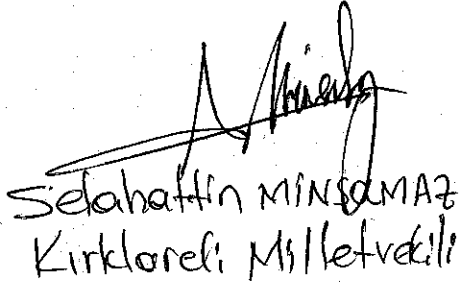 Selahattin MİNSOLMAZ
Kırklareli Milletvekili